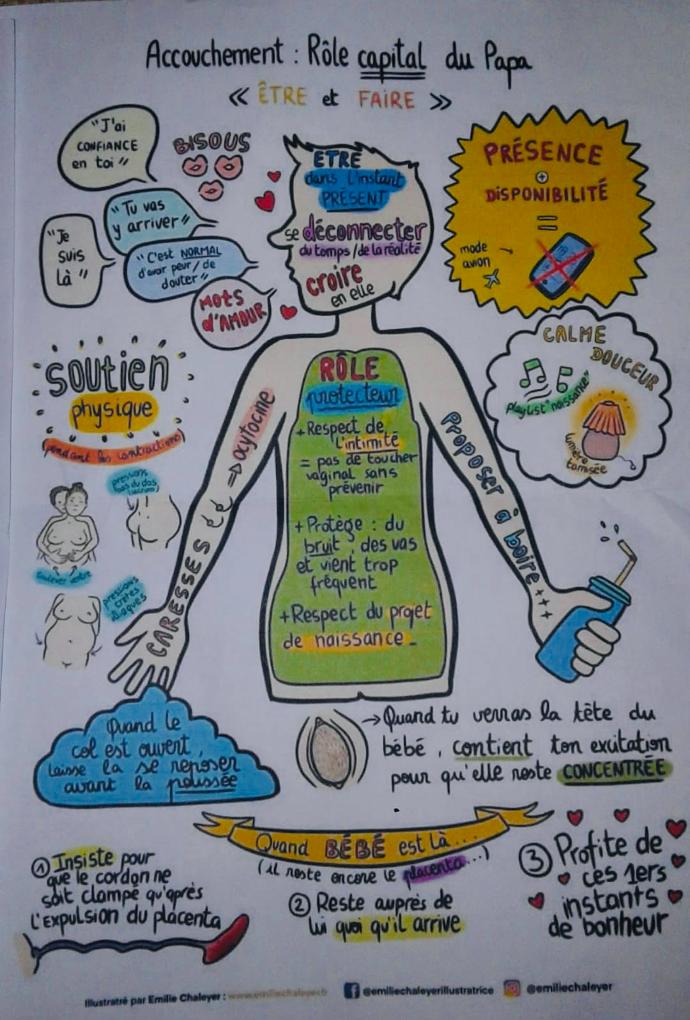 Accouchement : Rôle capital du Papa
« ÊTRE et FAIRE »
"J'ai
CONFIANCE
en toi"
BISOUS
"Tu vas
y arriver"
"Je
suis
là"
"C'est NORMAL
d'avoir peur/de
douter"
MOTS
d'AMOUR
ÊTRE
dans l'instant
PRÉSENT
se déconnecter
du temps/de la réalité
croire
en elle
PRÉSENCE
+
DISPONIBILITÉ
=
mode
avion
CALME
DOUCEUR
playlist "naissance"
lumière
tamisée
soutien
physique
(pendant les contractions)
pressions
bas du dos
(sacrum)
soulever ventre
pressions
crêtes
iliaques
CARESSES => ocytocine
RÔLE
protecteur
+Respect de
l'intimité
= pas de toucher
vaginal sans
prévenir
+Protège : du
bruit, des vas
et vient trop
fréquent
+Respect du projet
de naissance_
Proposer à boire +++
Quand le
col est ouvert,
laisse la se reposer
avant la poussée
→Quand tu verras la tête du
bébé, contient ton exitation
pour qu'elle reste CONCENTRÉE
Quand BÉBÉ est là...
(il reste encore le placenta...)
① Insiste pour
que le cordon ne
soit clampé qu'après
l'expulsion du placenta
② Reste auprès de
lui quoi qu'il arrive
③ Profite de
ces 1ers
instants
de bonheur
Illustré par Emilie Chaleyer : www.emiliechaleyer.fr
@emiliechaleyerillustratrice
@emiliechaleyer